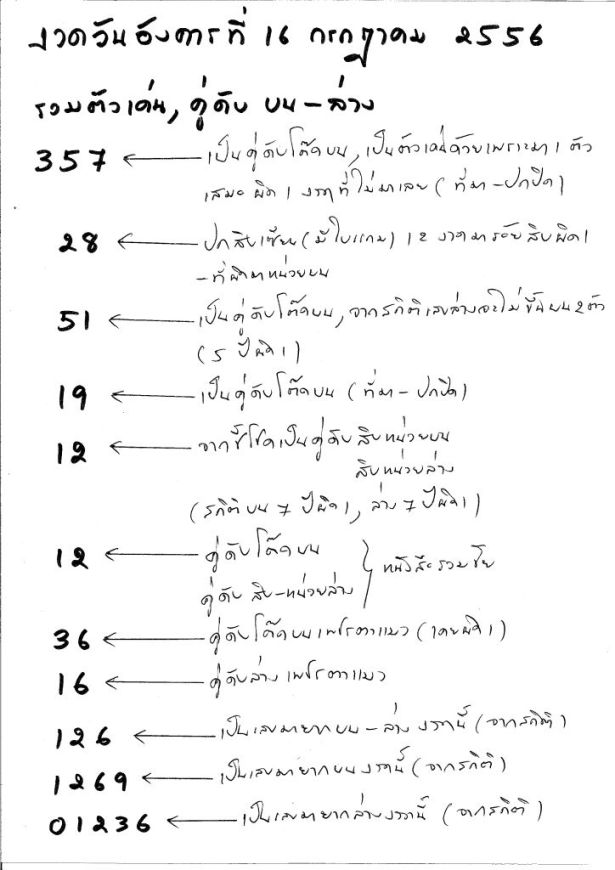 งวดวันอังคารที่ 16 กรกฎาคม 2556
รวมตัวเด่น, คู่ดับ บน-ล่าง
357 ← เป็นคู่ดับโต๊ดบน, เป็นตัวเด่นด้วยเพราะมา 1 ตัว
เสมอ ผิด 1 งวดที่ไม่มาเลย (ที่มา-ปกปิด)
28 ← ปกสิบเซียน (มีใบแถม) 12 งวดมาร้อยสิบผิด 1
-ที่ผิดมาหน่วยบน
51 ← เป็นคู่ดับโต๊ดบน, จากสถิติเลขล่างจะไม่ขึ้นบน 2 ตัว
(5 ปีผิด 1)
19 ← เป็นคู่ดับโต๊ดบน (ที่มา-ปกปิด)
12 ← จากชี้โชคเป็นคู่ดับ สิบหน่วยบน
สิบหน่วยล่าง
(สถิติบน 7 ปีผิด 1, ล่าง 7 ปีผิด 1)
12 ← คู่ดับโต๊ดบน
คู่ดับ สิบ-หน่วยล่าง } หนังสือรวมชัย
36 ← คู่ดับโต๊ดบนเพชรตาแมว (เคยผิด 1)
16 ← คู่ดับล่างเพชรตาแมว
126 ← เป็นเลขมายากบน-ล่าง งวดนี้ (จากสถิติ)
1269 ← เป็นเลขมายากบนงวดนี้ (จากสถิติ)
01236 ← เป็นเลขมายากล่างงวดนี้ (จากสถิติ)